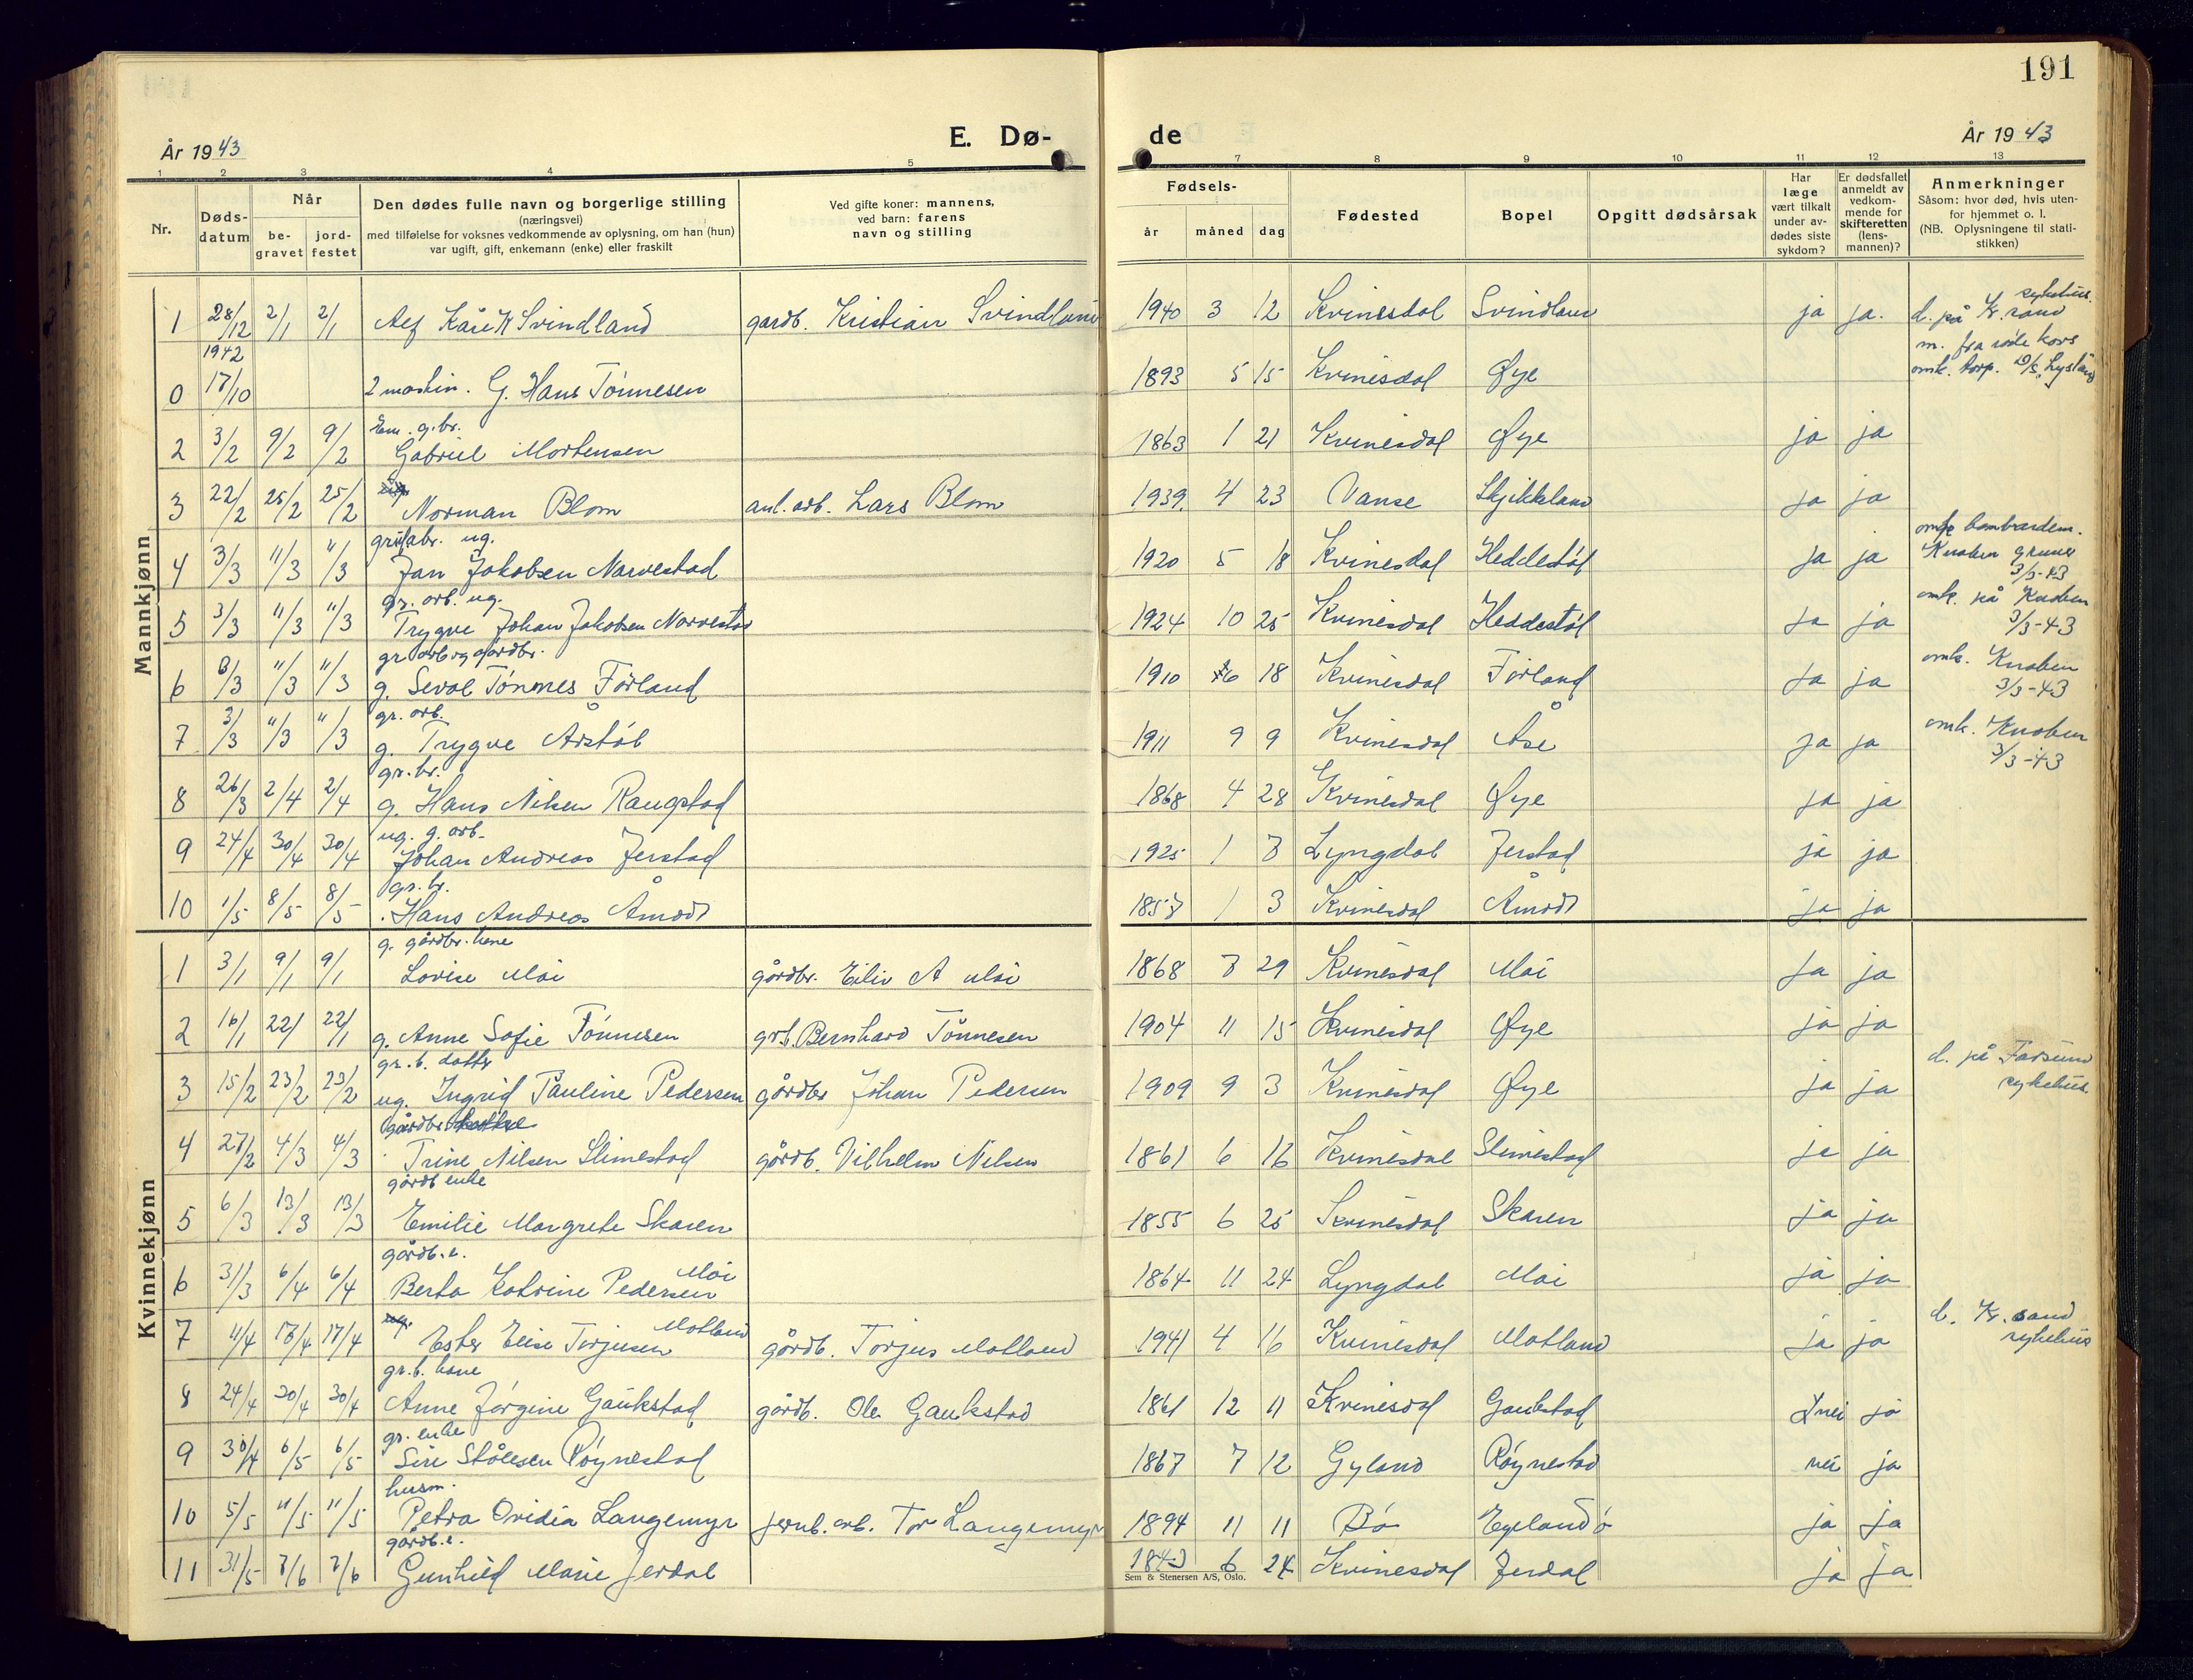 191
År 1943
E. Dø-
de
År 1943
1 2 3 4 5 7 8 9 10 11 12 13
Nr.
Døds-
datum
Når
be-
gravet
jord-
festet
Den dødes fulle navn og borgerlige stilling
(næringsvei)
med tilføielse for voksnes vedkommende av oplysning, om han (hun)
var ugift, gift, enkemann (enke) eller fraskilt
Ved gifte koner: mannens,
ved barn: farens
navn og stilling
Fødsels-
år måned dag
Fødested
Bopel
Opgitt dødsårsak
Har
læge
vært tilkalt
under av-
dødes siste
sykdom?
Er dødsfallet
anmeldt av
vedkom-
mende for
skifteretten
(lens-
mannen)?
Anmerkninger
Såsom: hvor død, hvis uten-
for hjemmet o. l.
(NB. Oplysningene til stati-
stikken)
Mannkjønn
1 28/12 2/1 2/1 Alf Kåre K Svindland gardb. Kristian Svindland 1940 3 12 Kvinesdal Svindland ja ja. d. på Kr.sand sykehus.
1942
0 17/10 2 maskin. G. Hans Tønnesen 1893 5 15 Kvinesdal Øye m. fra røde kors
omk. torp.
Em. g.br.
2 3/2 9/2 9/2 Gabriel Mortensen 1863 1 21 Kvinesdal Øye ja ja
3 22/2 25/2 25/2 Norman Blom anl. arb. Lars Blom 1939. 4 23 Vanse ja ja
ug.
4 3/3 11/3 "/3 Jan Jakobsen Narvestad 1920 5 18 Kvinesdal Heddestøl ja ja omk bombardem.
Knaben gruver
3/3-43
gr. arb. ug.
5 3/3 11/3 11/3 Trygve Johan Jakobsen Narvestad 1924 10 25 Kvinesdal Heddestøl ja ja omk. på Knaben
3/3-43
gr arb og gårdbr.
6 3/3 "/3 "/3 g. Seval Tønnes Førland 1910 6 18 Kvinesdal Førland ja ja omk. Knaben
3/3-43
gr. arb.
7 3/3 "/3 "/3 g. Trygve Årstøl 1911 9 9 Kvinesdal Åse ja ja omk. Knaben
3/3-43
gr. br.
8 26/3 2/4 2/4 g. Hans Nilsen Raugstad 1868 4 28 Kvinesdal Øye ja ja
ug. g. arb.
9 24/4 30/4 30/4 Johan Andreas Jerstad 1925 1 7 Lyngdal Jerstad ja ja
gr. br.
10 1/5 8/5 8/5 Hans Andreas Åmodt 1857 1 3 Kvinesdal Åmodt ja ja
Kvinnekjønn
g. gårdbr. kone
1 3/1 9/1 9/1 Lovise Moi gårdbr. Eiliv A Moi 1868 7 29 Kvinesdal Moi ja ja
2 16/1 22/ 22/1 g. Anne Sofie Tønnesen gr.b. Bernhard Tønnesen 1904 11 15 Kvinesdal Øye ja ja
gr. b. datter
3 15/2 23/2 23/2 ug. Ingrid Pauline Pedersen gårdbr Johan Pedersen 1909 9 3 Kvinesdal Øye ja ja d. på Farsund
sykehus.
gårdbr
4 27/2 4/3 4/3 Trine Nilsen Slimestad gårdb. Vilhelm Nilsen 1861 6 16 Kvinesdal Slimestad ja ja
gårdb enke
5 6/3 13/3 13/3 Emilie Margrete Skaren 1855 6 25 Kvinesdal Skaren ja ja
gårdb. e.
6 31/3 6/4 6/4 Berta Katrine Pedersen Moi 1864 11 24 Lyngdal Moi ja ja
7 11/4 17/4 17/4 Ester Elise Torjusen Motland gårdb. Torjus Motland 1941 4 16 Kvinesdal Motland ja ja d. Kr. sand
sykehus
gr. b. kone
8 24/4 30/4 30/4 Anne Jørgine Gaukstad gårdb. Ole Gaukstad 1861 12 11 Kvinesdal Gaukstad nei ja
gr. enke
9 30/4 6/5 6/5 Siri Stålesen Røynestad 1867 7 12 Gyland Røynestad nei ja
husm.
10 5/5 11/5 11/5 Petra Ovidia Langemyr jernb. arb. Tor Langemyr 1894 11 11 Bø Egeland ja ja
gårdb. e.
11 31/5 7/6 7/6 Gunhild Marie Jerdal 1843 6 24 Kvinesdal Jerdal ja ja
Sem & Stenersen A/S, Oslo.